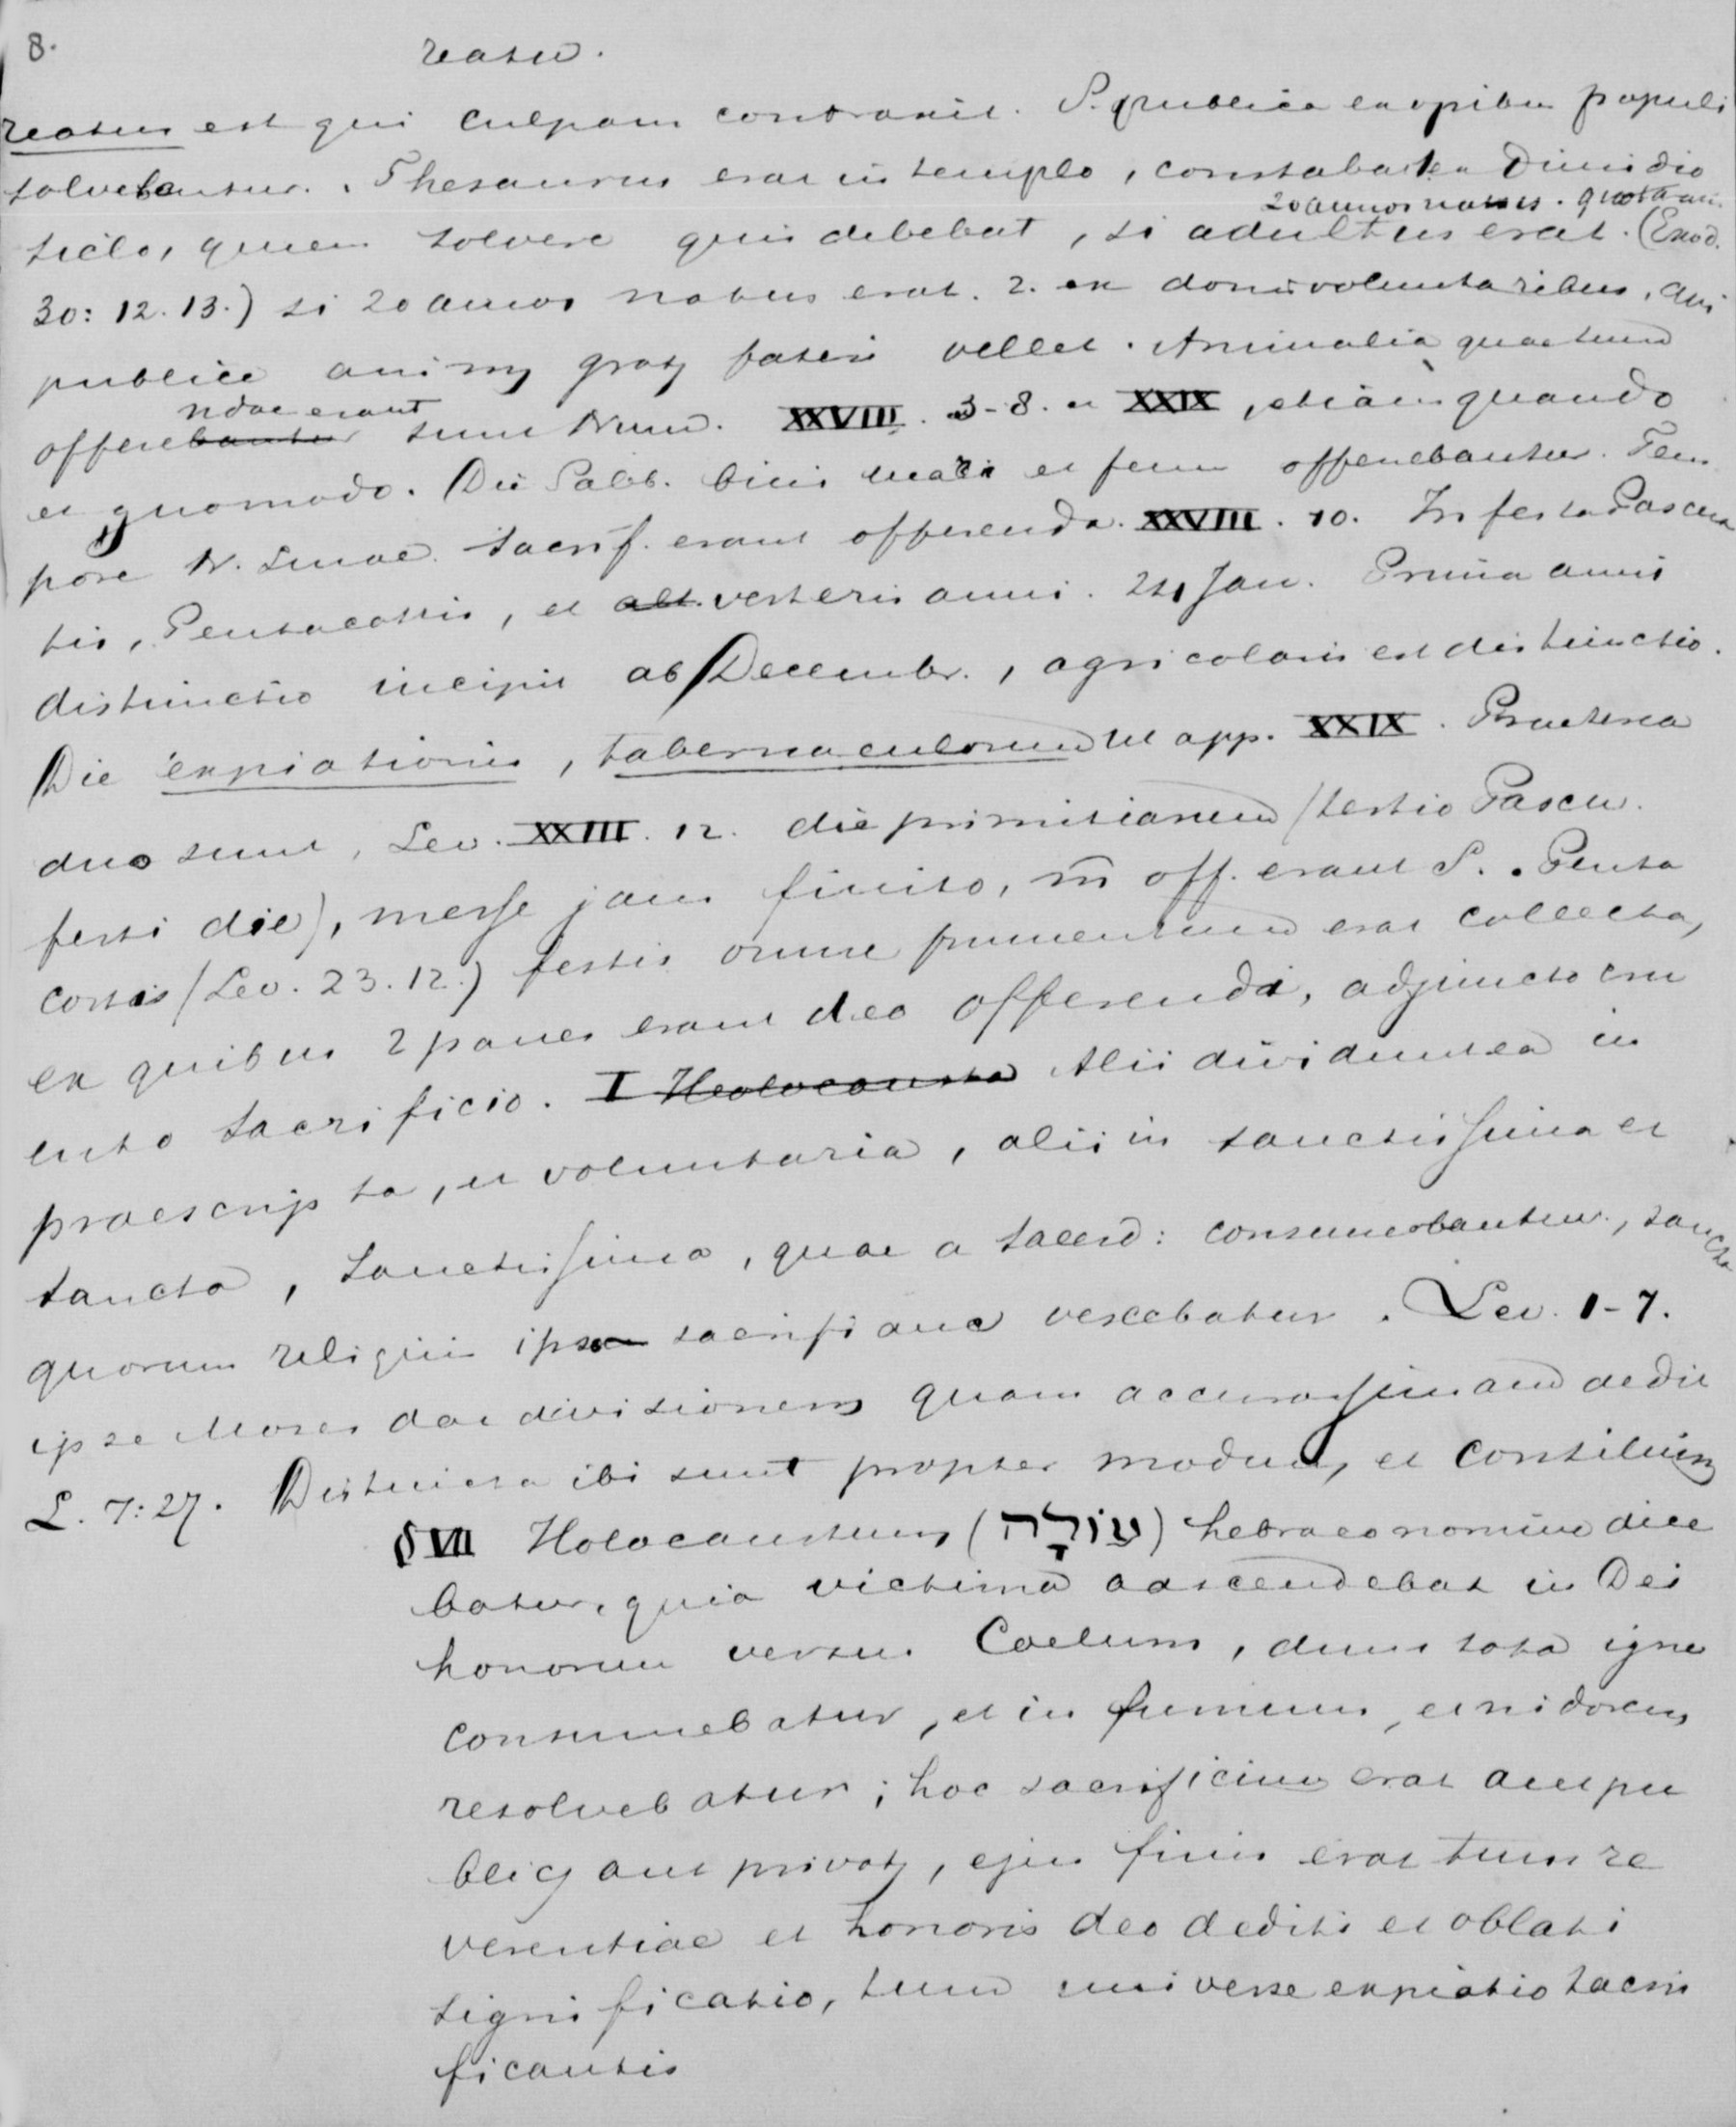 8.
reatu.
reatus est qui culpam contraxit. S. publica ex opibus populi
solvebantur. Thesaurus erat in templo, constabat ex dimidio
20 annos natus. quotan.
siclo, quem solvere quis debebat, si adultus erat. (Exod.
30: 12. 13.) si 20 annos natus erat. 2. ex donis voluntaribus, qui
publice animum gratum fateri vellet. Animalia quaetum
ndae erant
offerebantur sunt Num. XXVIII. 3-8. et XXIX, etiam quando
et quomodo. Die Sabb. bini matu et ferm offerebantur. Tem
pore N. Lunae. sacrif. erant offerenda. XXVIII. 10. In festo Pascha
tis, Pentacostis, et alt. vesteris anni. 21 Jan. Prima anni
distinctio incipit ab Decembr., agricolaris est distinctio.
Die expiationis, tabernaculorum ut app. XXIX. Praeterea
duo sunt, Lev. XXIII. 12. die primitiarum (tertio Pasch.
festi die), messe jam finito, m̅ off. erant S. Penta
costis (Lev. 23. 12.) festis omne frumentum erat collecta,
ex quibus 2 panes erant deo offerendi, adjuncto cru
ento sacrificio. I Heolocausta Alii dividunt ea in
praescripta, et voluntaria, alii in sanctissima et
sancta, sanctissima, quae a sacerd: consumebantur, sancta
quorum religuiis ipse sacrificans vescebatur. Lev. 1-7.
ipse Moses dat divisionem quam accuratissimam dedit
L. 7:27. Distincta ibi sunt propter modum, et consilium
§ VII Holocaustum (עוֹלָה) hebraeo nomine dice
batur, quia victima adscendebat in Dei
honorem versus Coelum, dum tota igne
consumebatur, et in fumum, et nidorem
resolvebatur; hoc sacrificium erat aut pu
blicum aut privatum, ejus finis erat tum re
verentiae et honoris deo dediti et oblati
significatio, tum universe expiatio sacri
ficantis